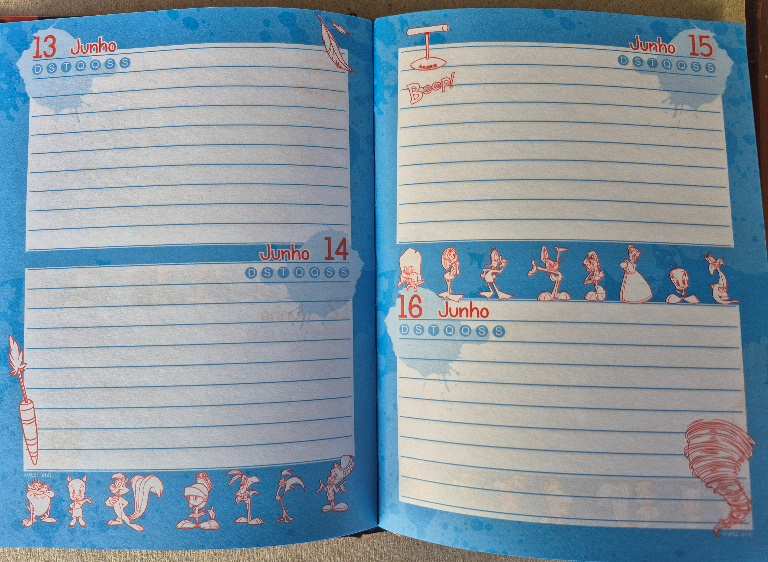 13 Junho
D S T Q Q S S
Junho 14
D S T Q Q S S
Beep!
Junho 15
D S T Q Q S S
16 Junho
D S T Q Q S S